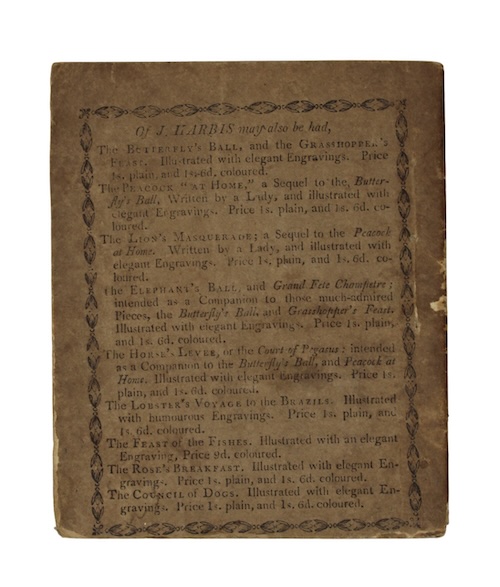 Of J. HARRIS may also be had,
The BUTTERFLY'S BALL, and the GRASSHOPPER'S
FEAST. Illustrated with elegant Engravings. Price
1s. plain, and 1s. 6d. coloured.
The PEACOCK "AT HOME," a Sequel to the, Butter-
fly's Ball, Written by a Lady, and illustrated with
elegant Engravings. Price 1s. plain, and 1s. 6d. co-
loured.
The LION'S MASQUERADE; a Sequel to the Peacock
at Home. Written by a Lady, and illustrated with
elegant Engravings. Price 1s. plain, and 1s. 6d. co-
loured.
The ELEPHANT'S BALL, and Grand Fete Champetre:
intended as a Companion to those much-admired
Pieces, the Butterfly's Ball, and Grasshopper's Feast.
Illustrated with elegant Engravings. Price 1s. plain,
and 1s. 6d. coloured.
The HORSE'S LEVEE, or the Court of Pegasus: intended
as a Companion to the Butterfly's Ball, and Peacock at
Home. Illustrated with elegant Engravings. Price 1s.
plain, and 1s. 6d. coloured.
The LOBSTER'S VOYAGE to the BRAZILS. Illustrated
with humourous Engravings. Price 1s. plain, and
1s. 6d. coloured.
The FEAST of the FISHES. Illustrated with an elegant
Engraving, Price 9d. coloured.
The ROSE'S BREAKFAST. Illustrated with elegant En-
gravings. Price 1s. plain, and 1s. 6d. coloured.
The COUNCIL of DOGS. Illustrated with elegant En-
gravings. Price 1s. plain, and 1s. 6d. coloured.